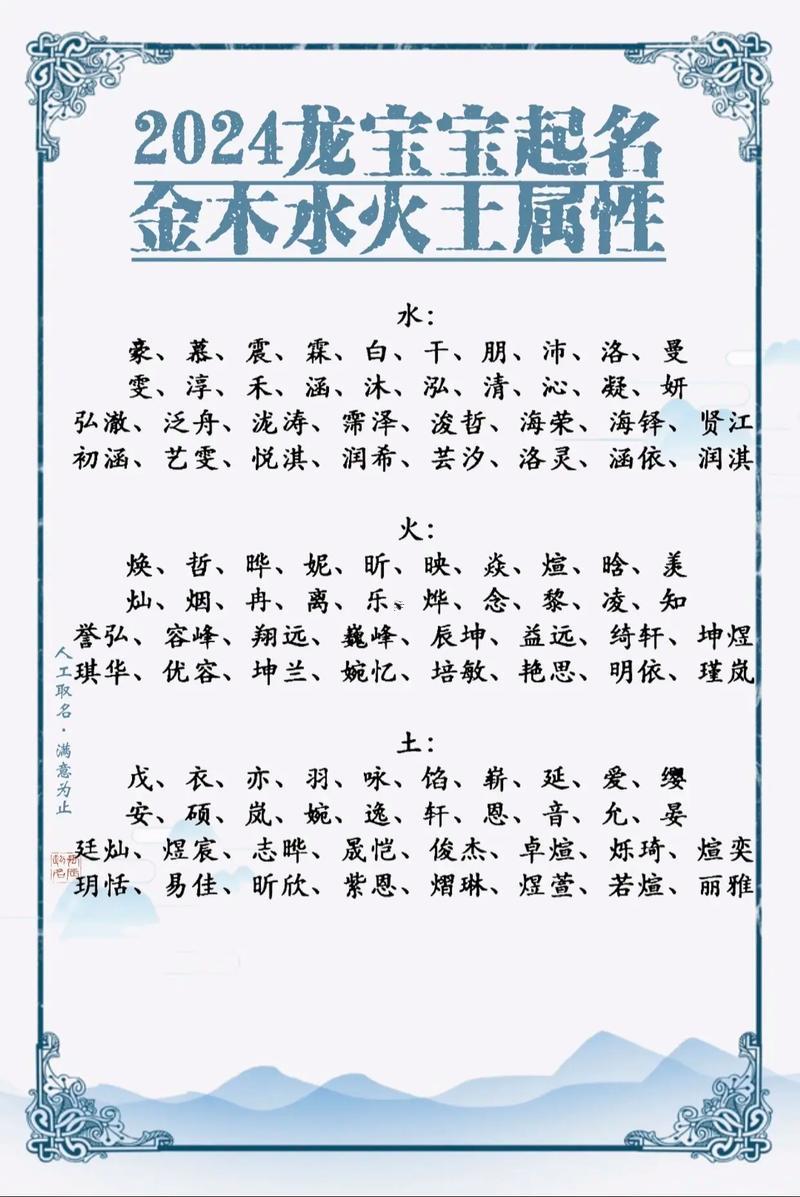 2024龙宝宝起名
金木水火土属性
水：
豪、慕、震、霖、白、干、朋、沛、洛、曼
雯、淳、禾、涵、沐、泓、清、沁、凝、妍
弘澈、泛舟、泷涛、霈泽、浚哲、海荣、海铎、贤江
初涵、艺雯、悦淇、润希、芸汐、洛灵、涵依、润淇
火：
焕、哲、晔、妮、昕、映、焱、煊、晗、美
灿、烟、冉、离、乐、烨、念、黎、凌、知
誉弘、容峰、翔远、巍峰、辰坤、益远、绮轩、坤煜
琪华、优容、坤兰、婉忆、培敏、艳思、明依、瑾岚
土：
戊、衣、亦、羽、咏、馅、崭、延、爱、缨
安、硕、岚、婉、逸、轩、恩、音、允、晏
廷灿、煜宸、志晔、晟恺、俊杰、卓煊、烁琦、煊奕
玥恬、易佳、昕欣、紫恩、熠琳、煜萱、若煊、丽雅
人工取名·满意为止